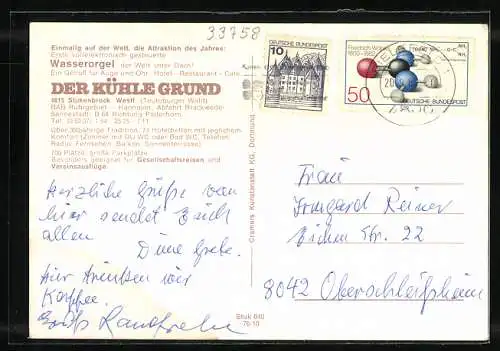 33758
Einmalig auf der Welt, die Attraktion des Jahres:
Erste vollelektronisch gesteuerte
Wasserorgel der Welt unter Dach!
Ein Genuß für Auge und Ohr Hotel - Restaurant - Café
DER KÜHLE GRUND
4815 Stukenbrock Westf. (Teutoburger Wald)
BAB Ruhrgebiet - Hannover, Abfahrt Brackwede-
Sennestadt, B 68 Richtung Paderborn
Über 300jährige Tradition, Hotelbetten mit jeglichem
Komfort (Zimmer mit DU WC oder Bad WC, Telefon,
Radio, Fernsehen, Balkon, Sonnenterrasse)
700 Plätze, große Parkplätze
Besonders geeignet für Gesellschaftsreisen und
Vereinsausflüge.
Herzliche Grüße von
hier sendet Euch
allen
Deine Grete.
Hier trinken wir
Kaffee.
Cramers Kunstanstalt KG, Dortmund
Stuk 640
10
DEUTSCHE BUNDESPOST
Friedrich Wöhler
1800-1882
50
DEUTSCHE BUNDESPOST
Frau
Irmgard Reiner
Eichen Str. 22
8042 Oberschleißheim